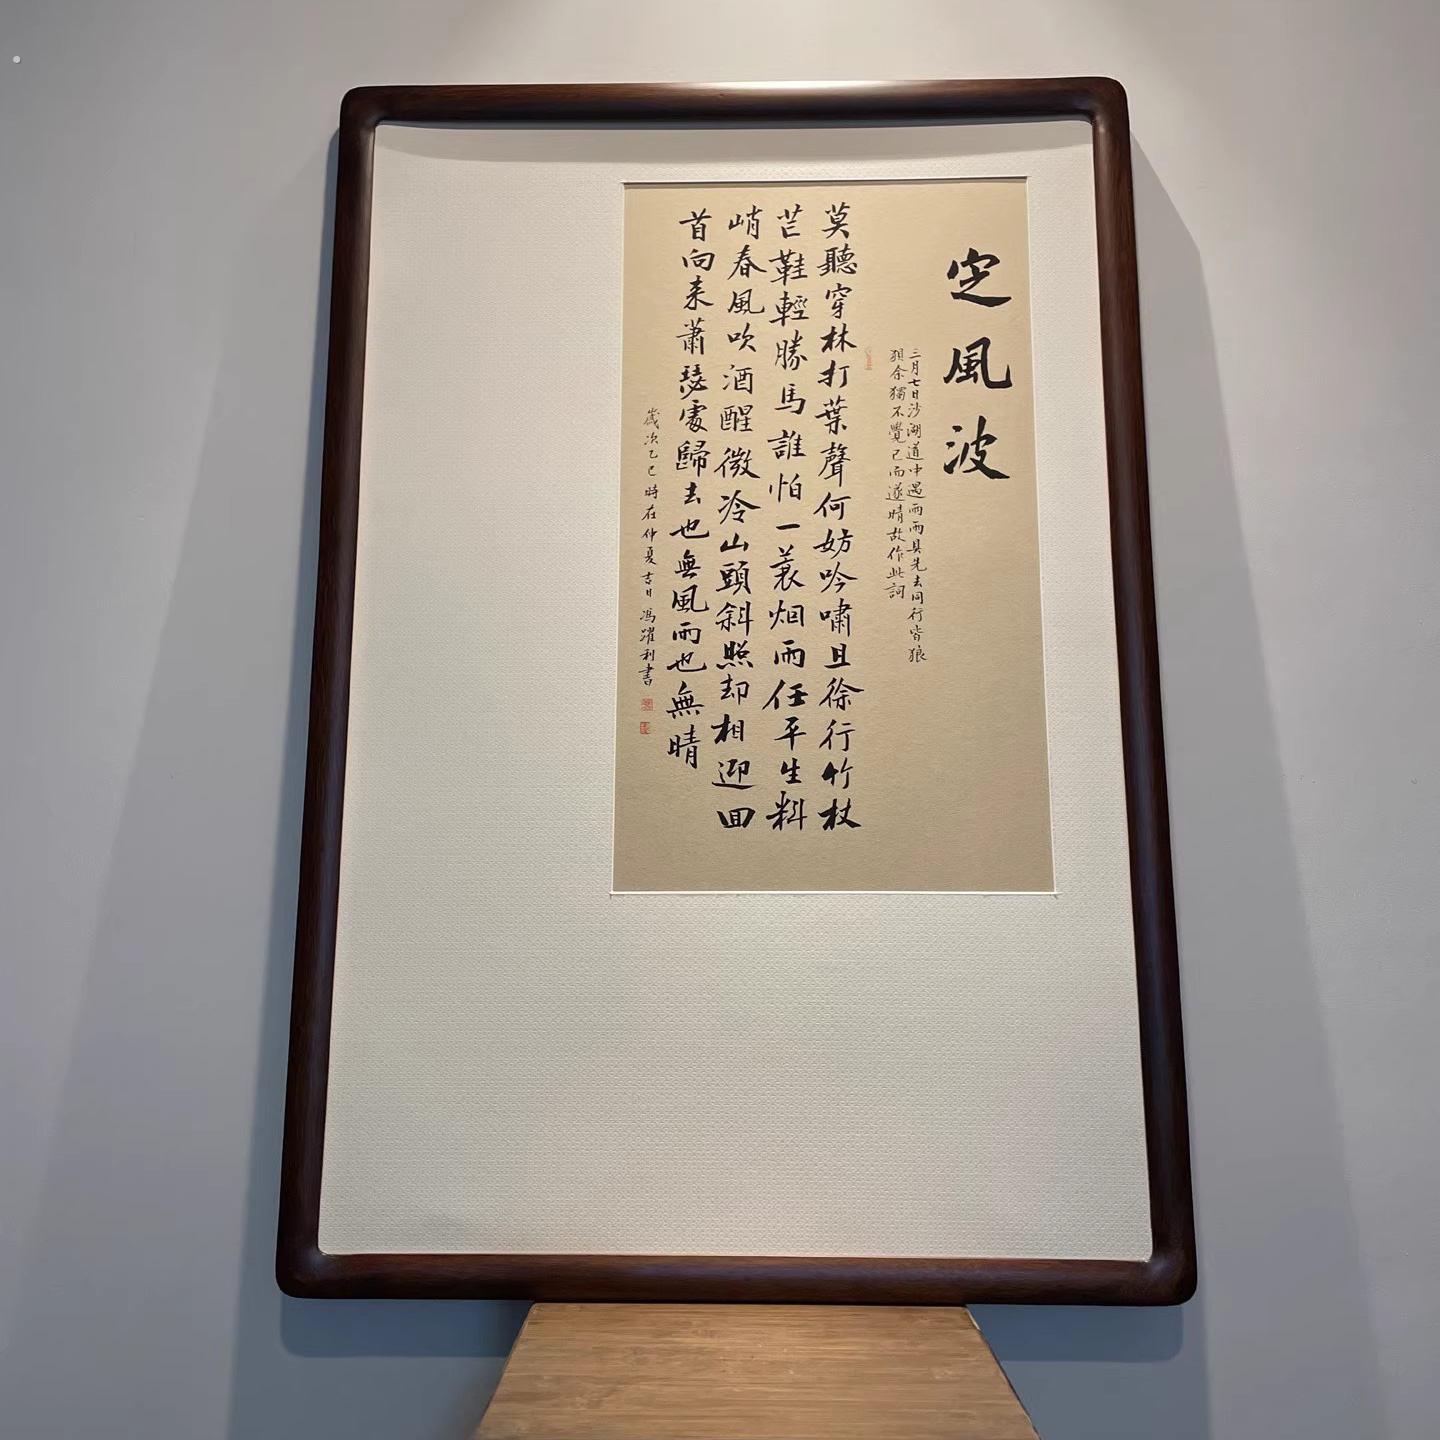 定風波
三月七日沙湖道中遇雨雨具先去同行皆狼
狽余獨不覺已而遂晴故作此詞
莫聽穿林打葉聲何妨吟嘯且徐行竹杖
芒鞋輕勝馬誰怕一蓑烟雨任平生料
峭春風吹酒醒微冷山頭斜照却相迎回
首向来蕭瑟處歸去也無風雨也無晴
歲次乙巳時在仲夏吉日馮躍利書